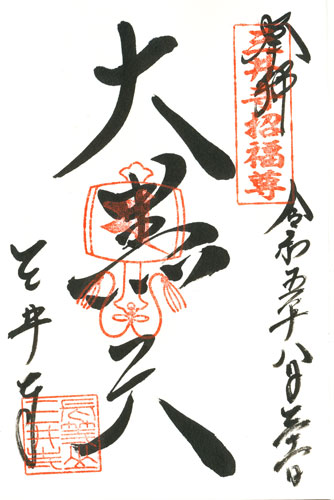 奉拝
三井寺招福尊
令和五年八月
大黒天
三井寺